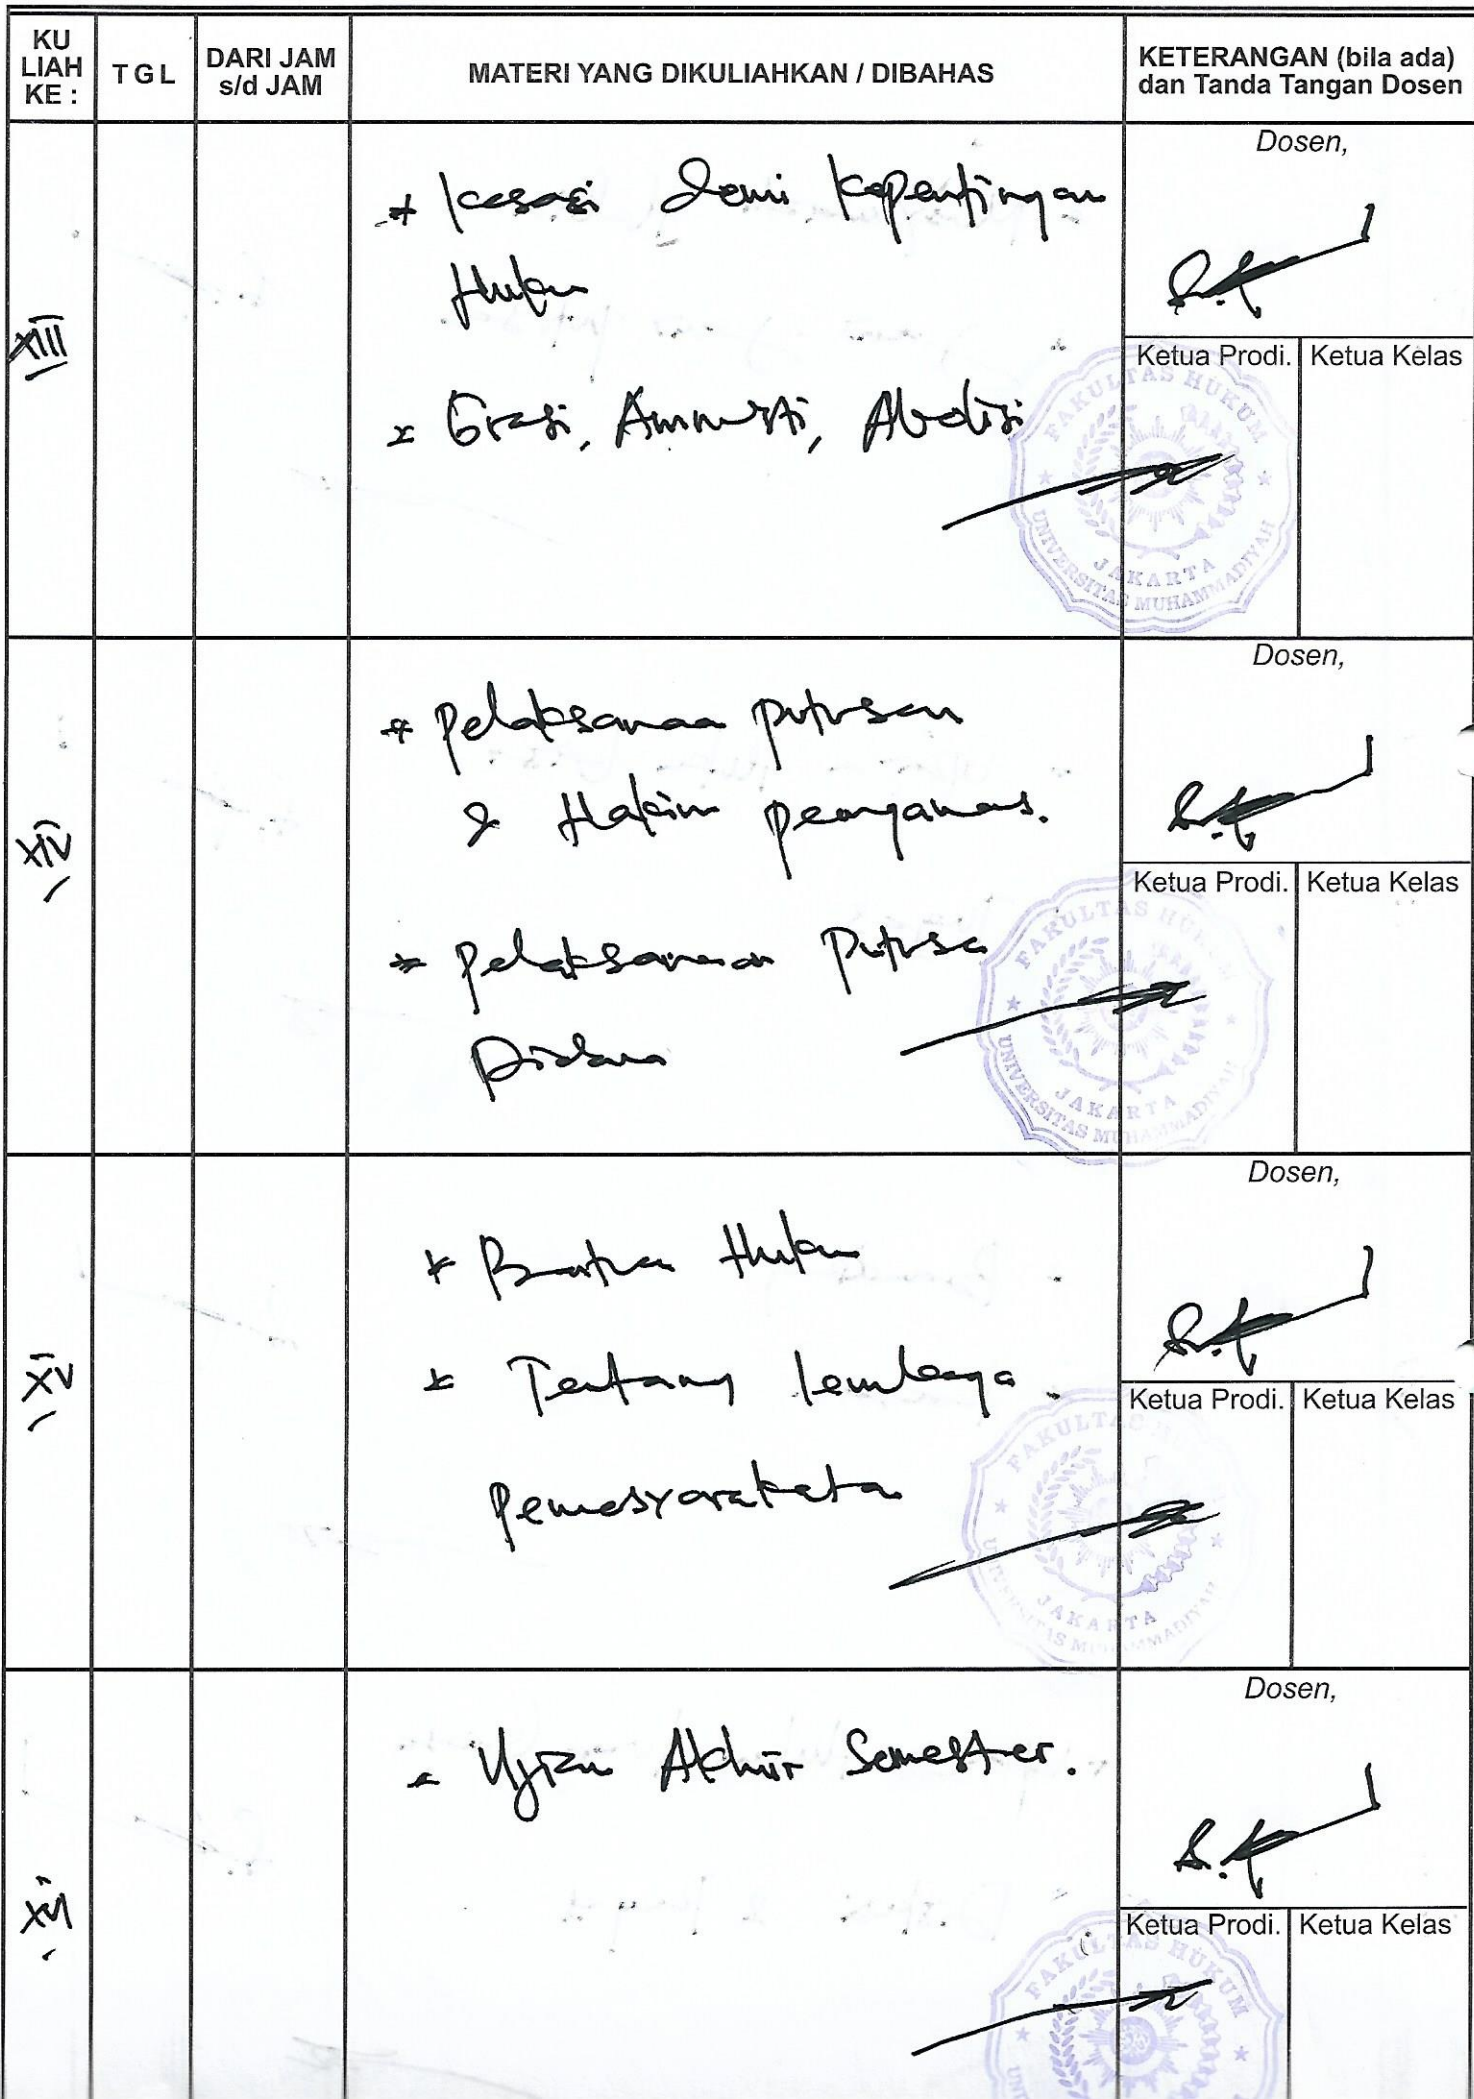 KU
LIAH
KE :
TGL
DARI JAM
s/d JAM
MATERI YANG DIKULIAHKAN / DIBAHAS
KETERANGAN (bila ada)
dan Tanda Tangan Dosen
XIII
* Kasasi Demi Kepentingan
Hukum
* Grasi, Amnesti, Abolisi
Dosen,
Ketua Prodi. Ketua Kelas
FAKULTAS HUKUM
JAKARTA
UNIVERSITAS MUHAMMADIYAH
XIV
* Pelaksanaan putusan
& Hakim pengawas.
* Pelaksanaan Putusan
Pidana
Dosen,
Ketua Prodi. Ketua Kelas
FAKULTAS HUKUM
JAKARTA
UNIVERSITAS MUHAMMADIYAH
XV
* Bantuan Hukum
* Tentang Lembaga
Pemasyarakatan
Dosen,
Ketua Prodi. Ketua Kelas
FAKULTAS HUKUM
JAKARTA
UNIVERSITAS MUHAMMADIYAH
XVI
- Ujian Akhir Semester.
Dosen,
Ketua Prodi. Ketua Kelas
FAKULTAS HUKUM